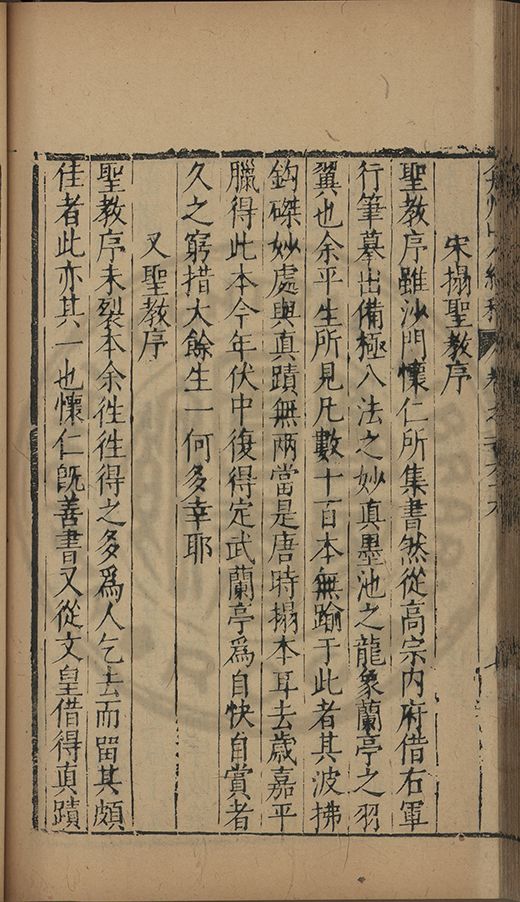 宋搨聖教序
聖教序雖沙門懷仁所集書然從高宗内府借右軍
行筆摹出備極八法之妙真墨池之龍象蘭亭之羽
翼也余平生所見凡數十百本無踰于此者其波拂
鈎磔妙處與真蹟無兩當是唐時搨本耳去歲嘉平
臘得此本今年伏中復得定武蘭亭爲自快自賞者
久之窮措大餘生一何多幸耶
又聖教序
聖教序未裂本余徃徃得之多爲人乞去而留其頗
佳者此亦其一也懷仁既善書又從文皇借得真蹟